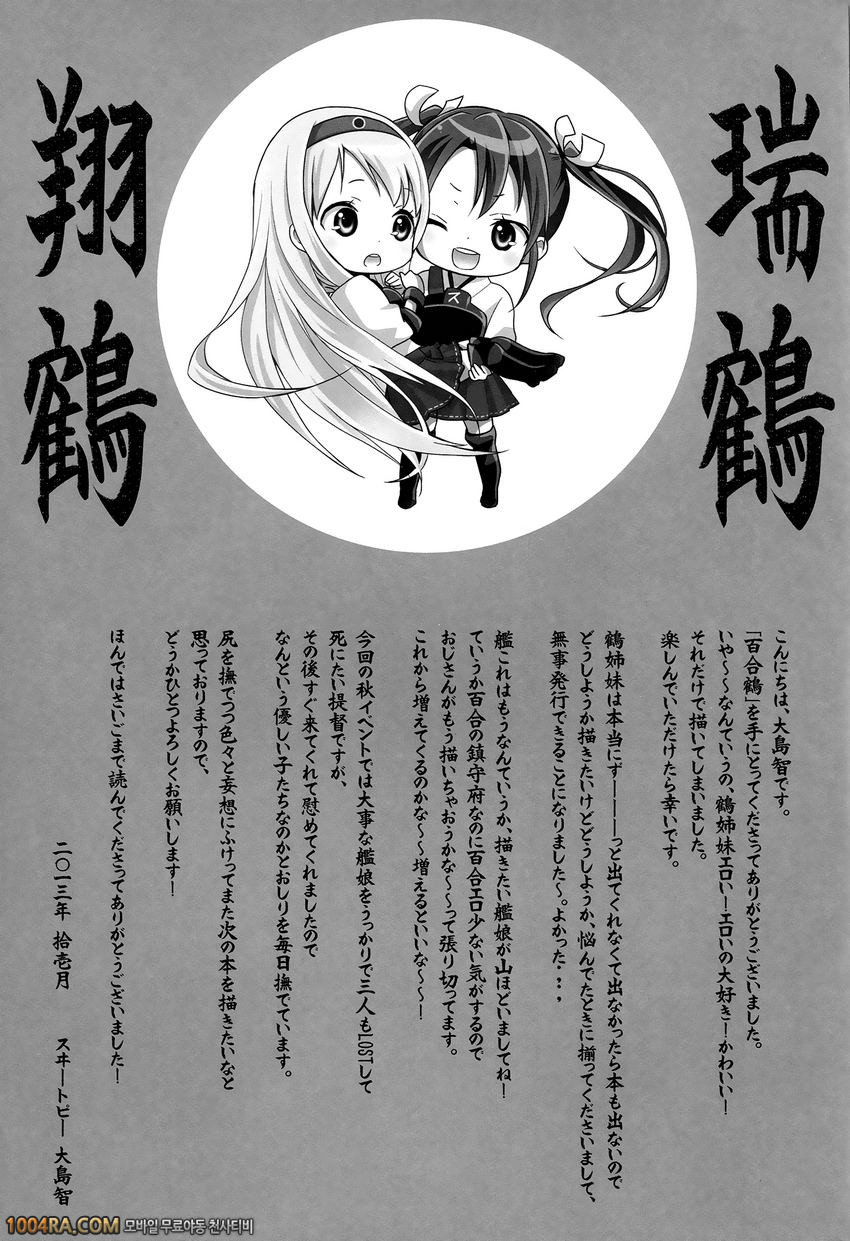 瑞鶴
翔鶴
ス
こんにちは、大島智です。
「百合鶴」を手にとってくださってありがとうございました。
いや～～なんていうの、鶴姉妹エロいーエロいの大好き！かわいい！
それだけで描いてしまいました。
楽しんでいただけたら幸いです。
鶴姉妹は本当にず―――っと出てくれなくて出なかったら本も出ないので
どうしようか描きたいけどどうしようか、悩んでたときに揃ってくださいまして、
無事発行できることになりました～。よかった・・・,
艦これはもうなんていうか、描きたい艦娘が山ほどいましてね！
ていうか百合の鎮守府なのに百合エロ少ない気がするので
おじさんがもう描いちゃおうかな～～って張り切ってます。
これから増えてくるのかな～～増えるといいな～～！
今回の秋イベントでは大事な艦娘をうっかりで三人もLOSTして
死にたい提督ですが、
その後すぐ来てくれて慰めてくれましたので
なんという優しい子たちなのかとおしりを毎日撫でています。
尻を撫でつつ色々と妄想にふけってまた次の本を描きたいなと
思っておりますので、
どうかひとつよろしくお願いします！
ほんではさいごまで読んでくださってありがとうございました！
二〇一三年 拾壱月 スヰートピー 大島智
1004RA.COM 모바일 무료야동 천사티비